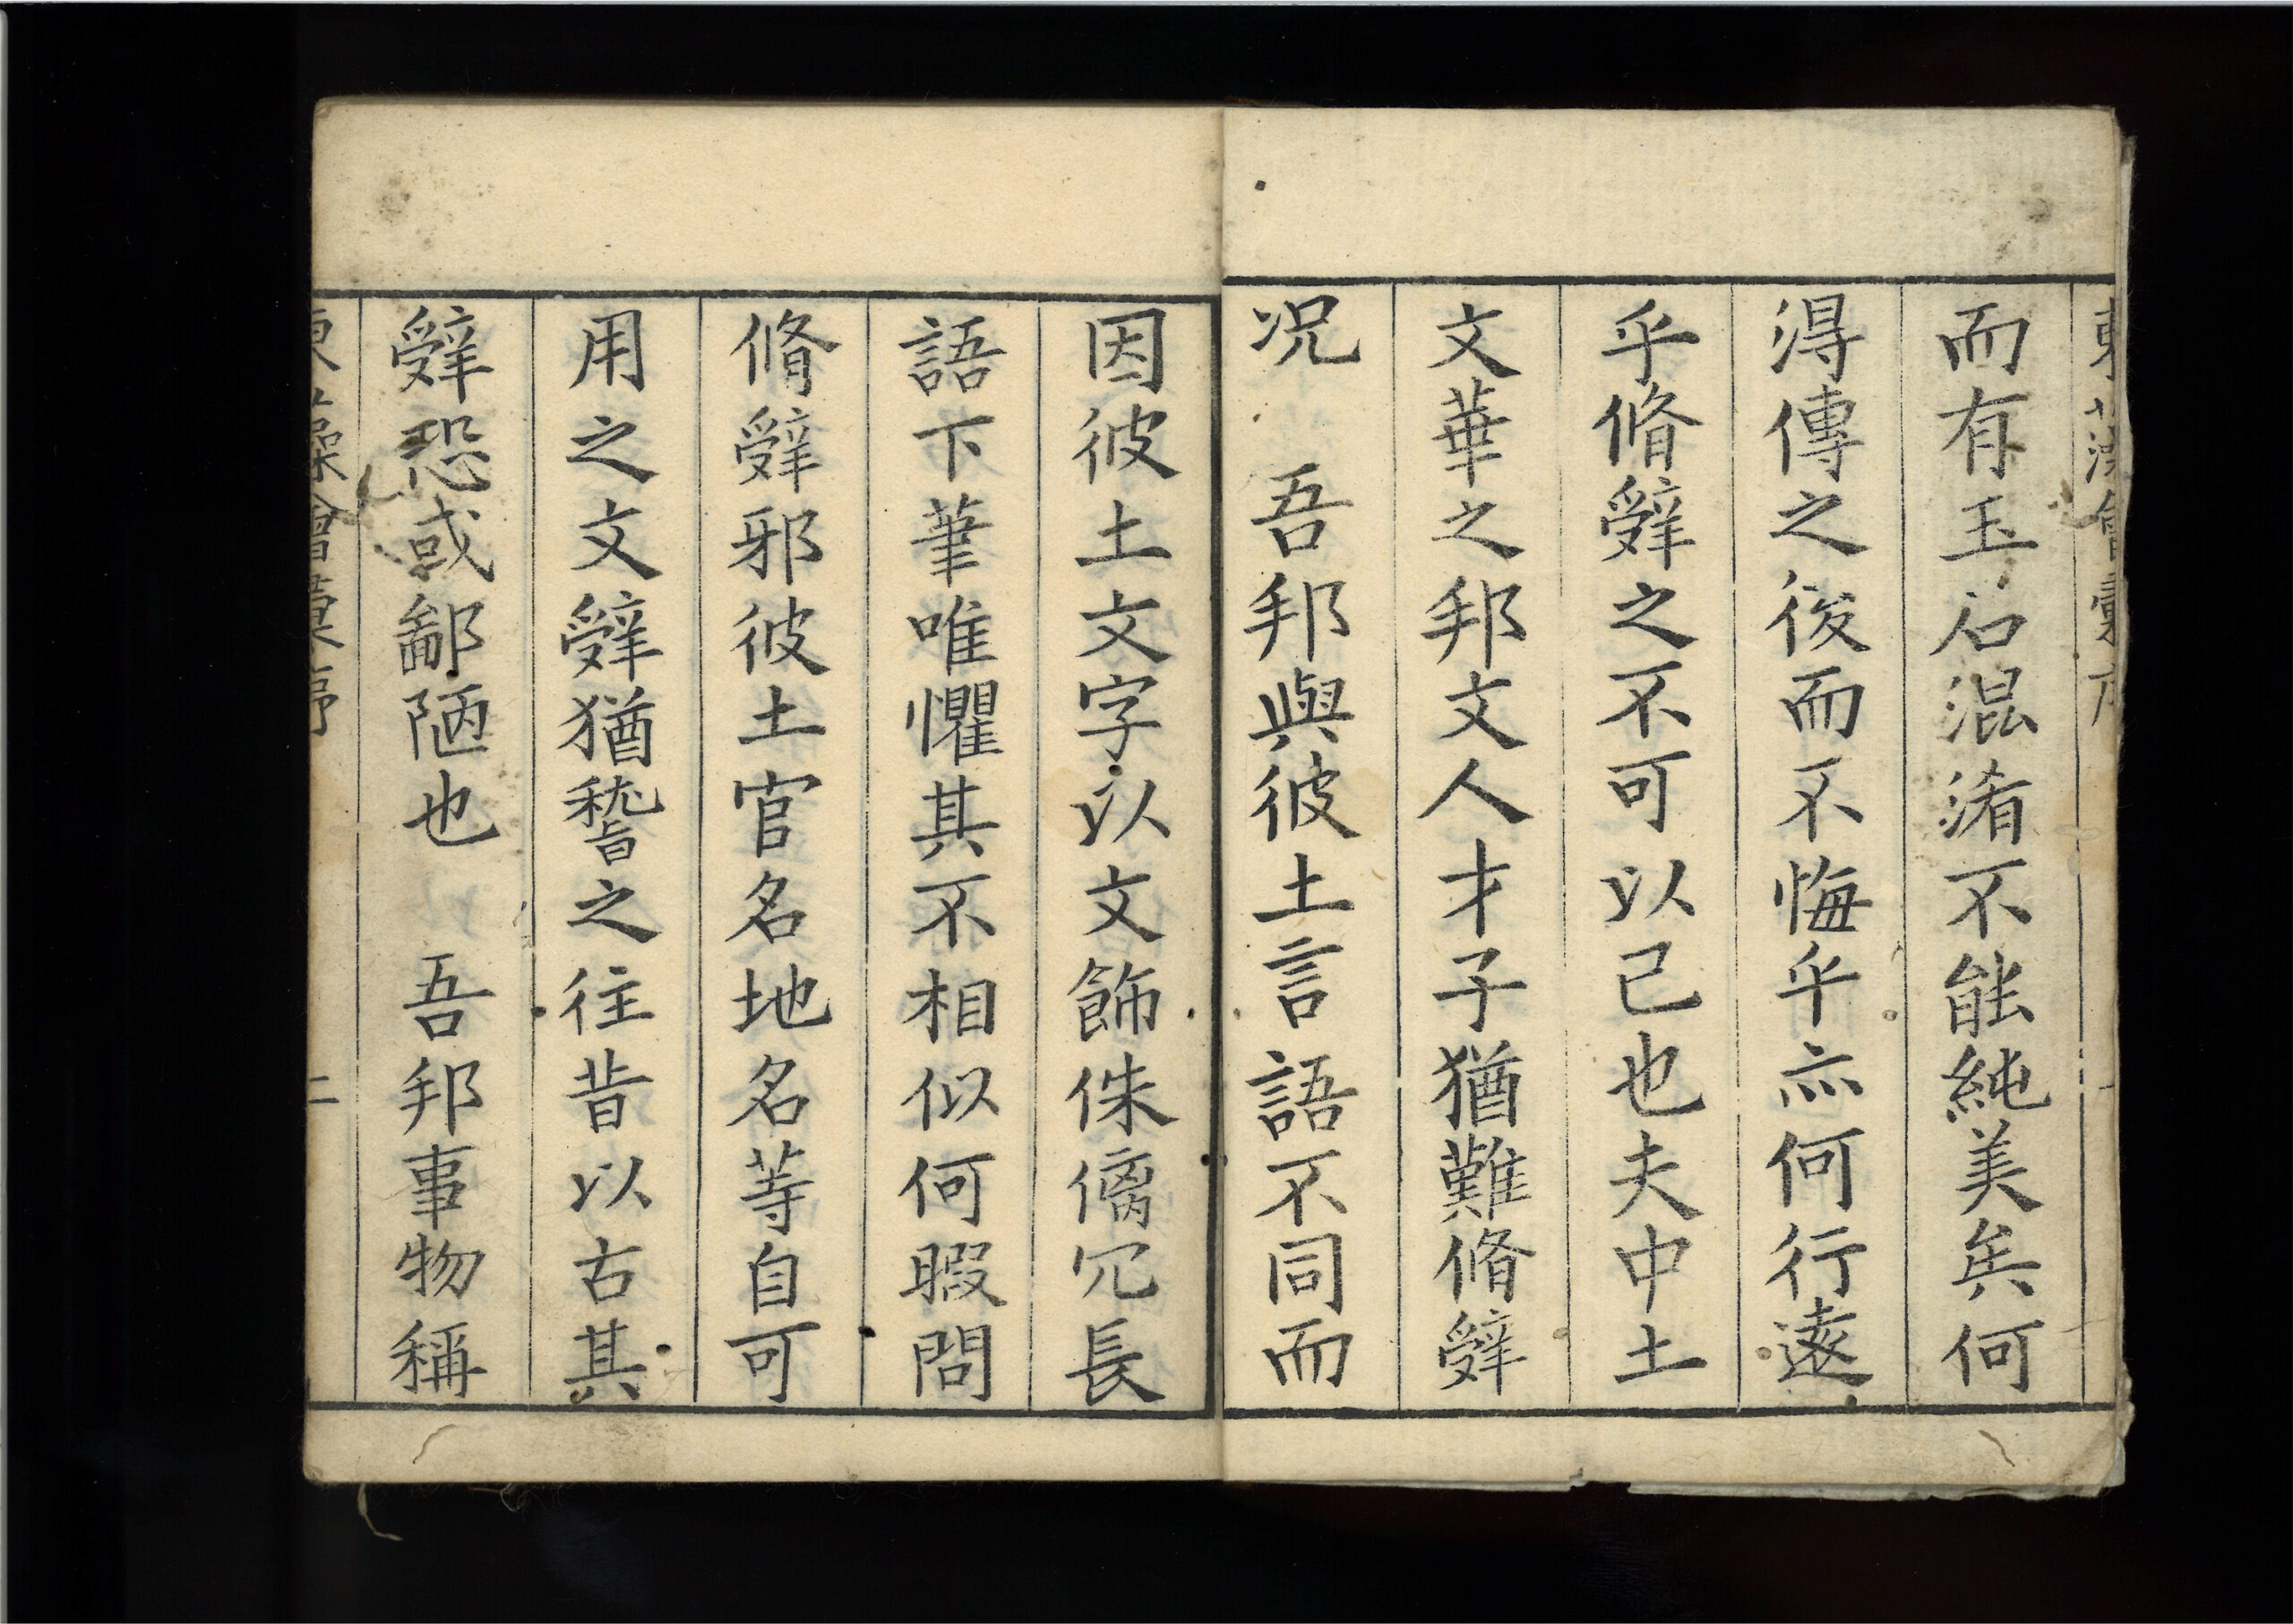 而有玉石混淆不能純美矣何
淂傳之後而不悔乎亦何行遠
乎脩辭之不可以已也夫中土
文華之邦文人才子猶難脩辭
况　吾邦與彼土言語不同而
因彼土文字以文飾侏㒧冗長
語下筆唯懼其不相似何暇問
脩辭邪彼土官名地名等自可
用之文辭猶稽之往昔以古其
辭恐或鄙陋也　吾邦事物稱
東藻會彙序　二